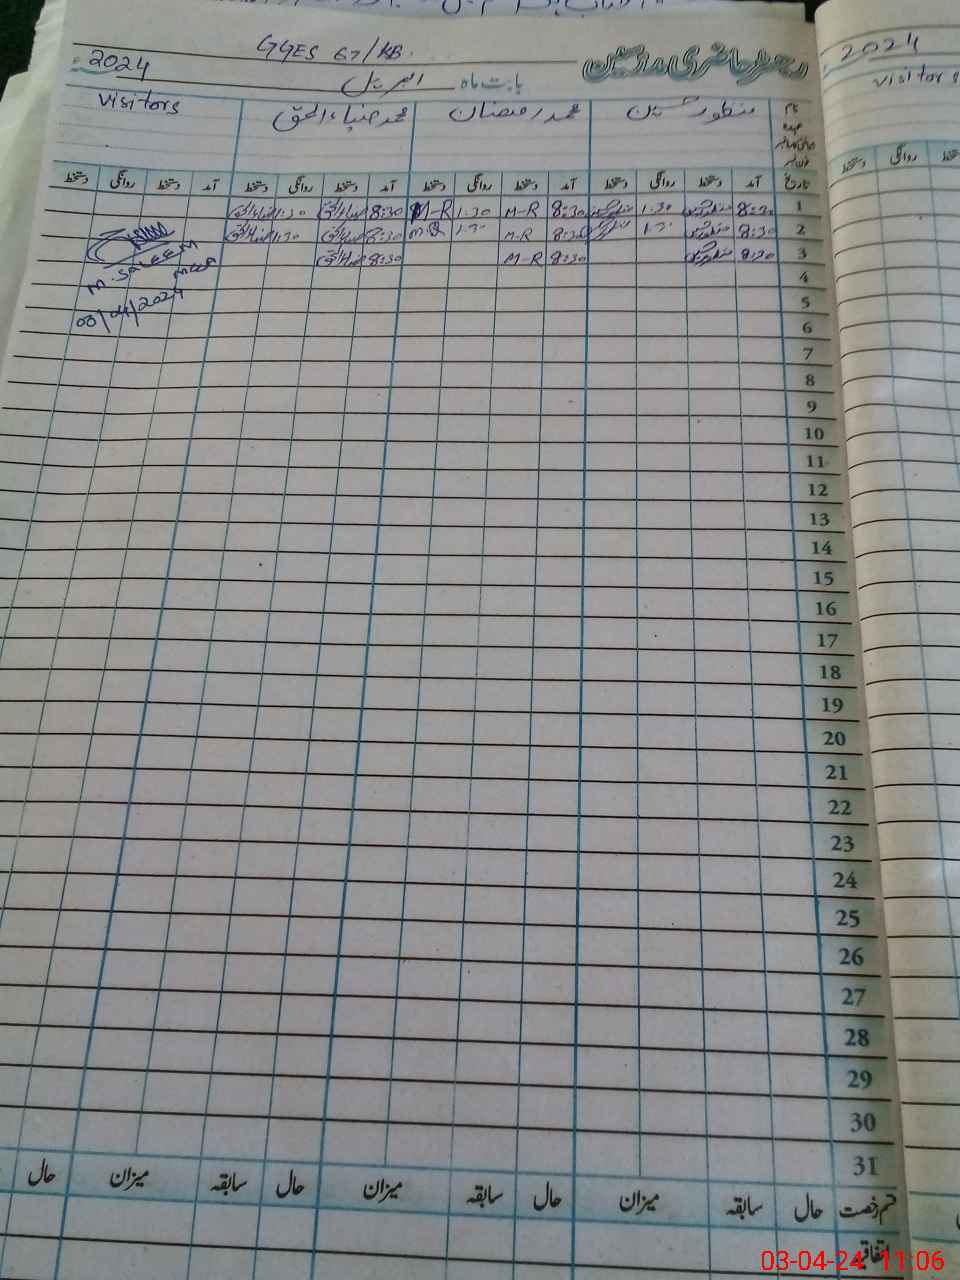 GGES 67/KB.
رجسٹر حاضری مدرسین
2024
بابت ماہ اپریل
2024
نام
عہدہ
منظور حسین
محمد رمضان
محمد ضیاء الحق
visitors
visitors
تاریخ آمد دستخط روانگی دستخط آمد دستخط روانگی دستخط آمد دستخط روانگی دستخط آمد دستخط روانگی دستخط
1 8:30 1:30 8:30 M-R 1:30 M-R 8:30 1:30
2 8:30 1:30 8:30 M-R 1:30 M-R 8:30 1:30
3 8:30 8:30 M-R 8:30
M. SALEEM
MEEA
03/04/2024
4
5
6
7
8
9
10
11
12
13
14
15
16
17
18
19
20
21
22
23
24
25
26
27
28
29
30
31
قسم رخصت حال سابقہ میزان حال سابقہ میزان حال سابقہ میزان حال
اتفاقیہ
03-04-24 11:06